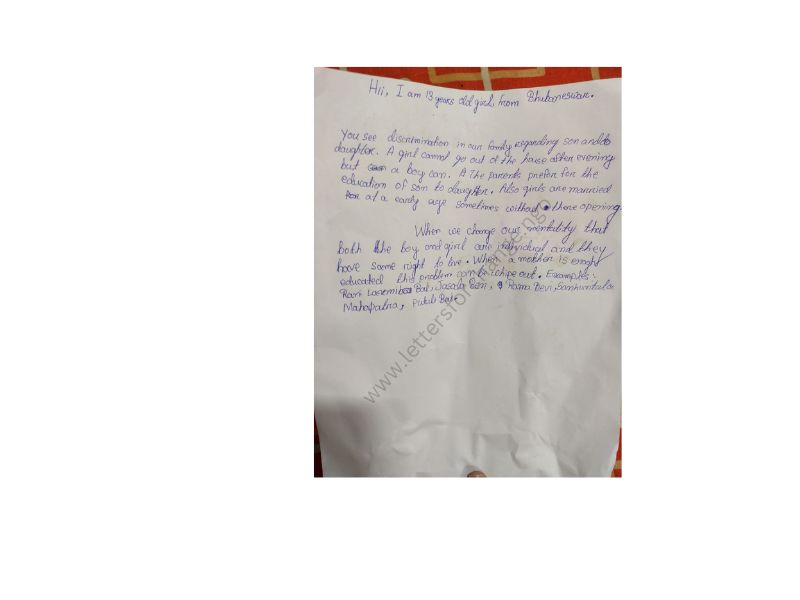 Hii, I am 13 years old girl from Bhubaneswar.
You see discrimination in our family regarding son and to
daughter. A girl cannot go out of the house after evening
but a boy can. A The parents prefer for the
education of son to daughter. Also girls are married
at a early age sometimes without there opening.
When we change our mentality that
both the boy and girl are individual and they
have same right to live. When a mother is
educated this problem can be whipe out. Examples:
Rani Bai, Devi, Rama Devi,
Mahapatra, Putuli Bai.
www.lettersforchange.ngo